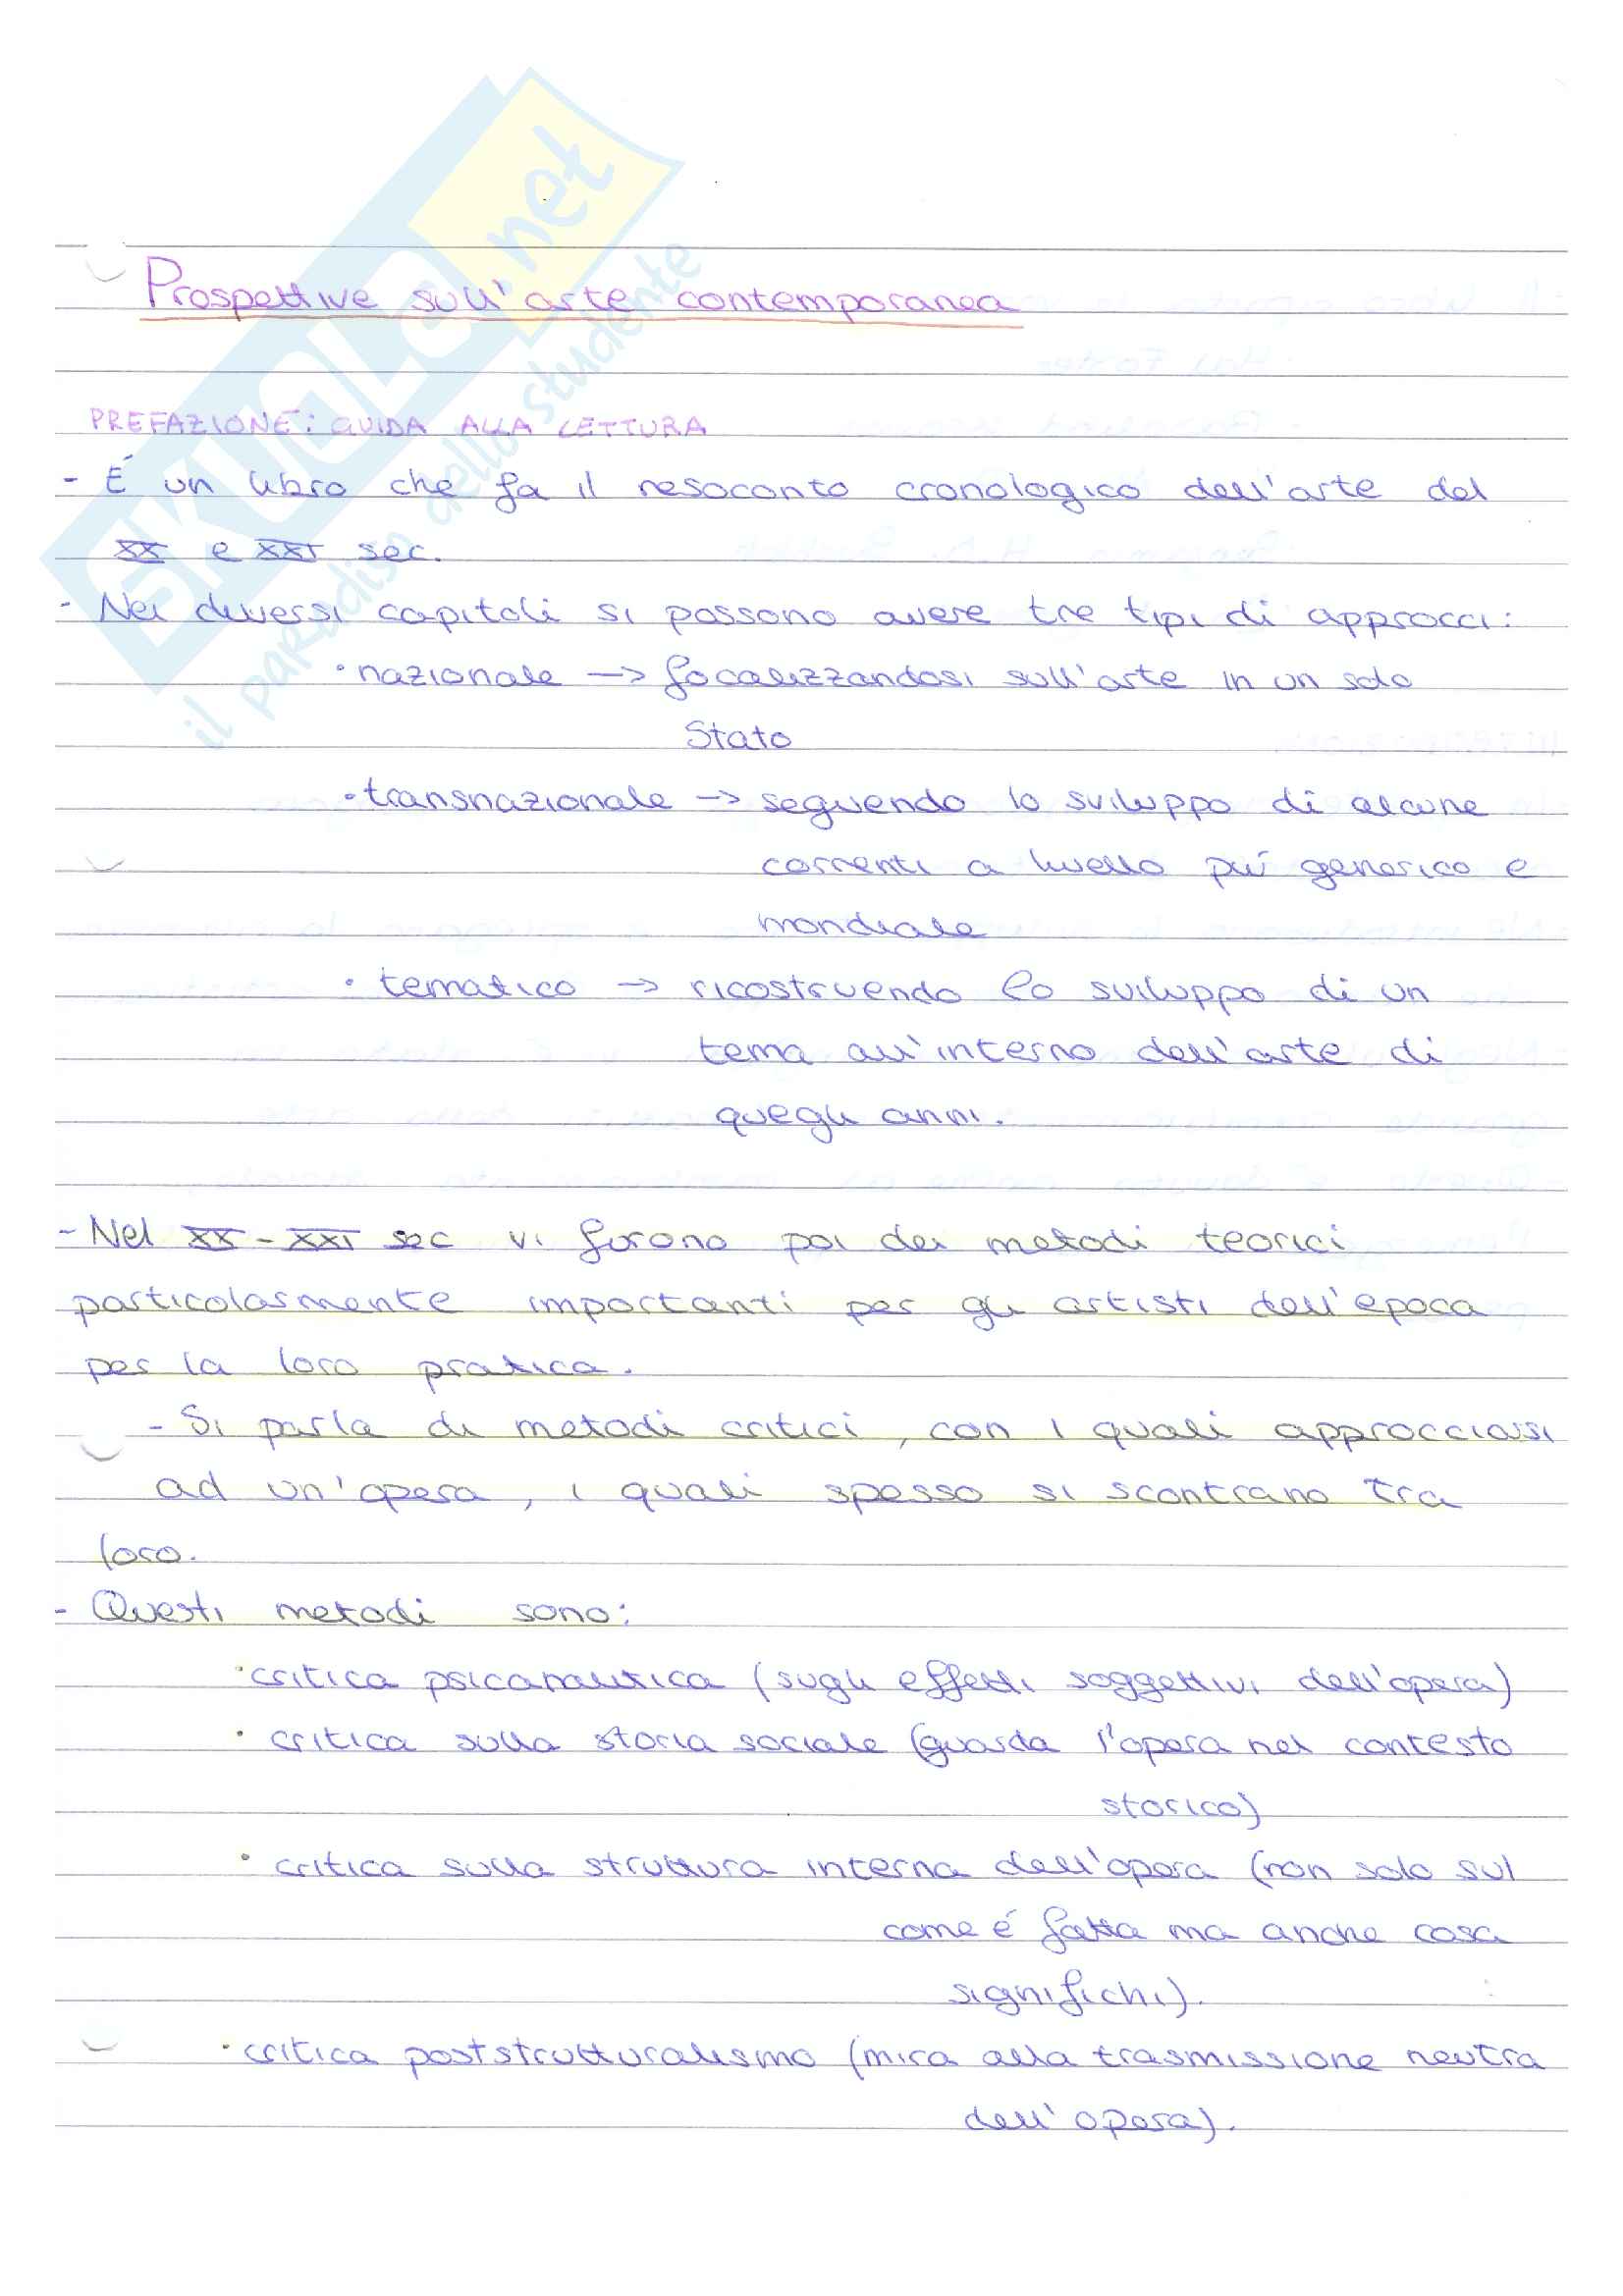 SKUOLA.net
il paradiso dello studente
Prospettive sull'arte contemporanea
PREFAZIONE: GUIDA ALLA LETTURA
- É un libro che fa il resoconto cronologico dell'arte del
XX e XXI sec.
- Nei diversi capitoli si possono avere tre tipi di approcci:
• nazionale -> focalizzandosi sull'arte in un solo
Stato
• transnazionale -> seguendo lo sviluppo di alcune
correnti a livello più generico e
mondiale
• tematico -> ricostruendo lo sviluppo di un
tema all'interno dell'arte di
quegli anni.
- Nel XX - XXI sec vi furono poi dei metodi teorici
particolarmente importanti per gli artisti dell'epoca
per la loro pratica.
- Si parla di metodi critici, con i quali approcciarsi
ad un'opera, i quali spesso si scontrano tra
loro.
- Questi metodi sono:
• critica psicanalitica (sugli effetti soggettivi dell'opera)
• critica sulla storia sociale (guarda l'opera nel contesto
storico)
• critica sulla struttura interna dell'opera (non solo sul
come é fatta ma anche cosa
significhi).
• critica poststrutturalismo (mira alla trasmissione neutra
dell'opera).